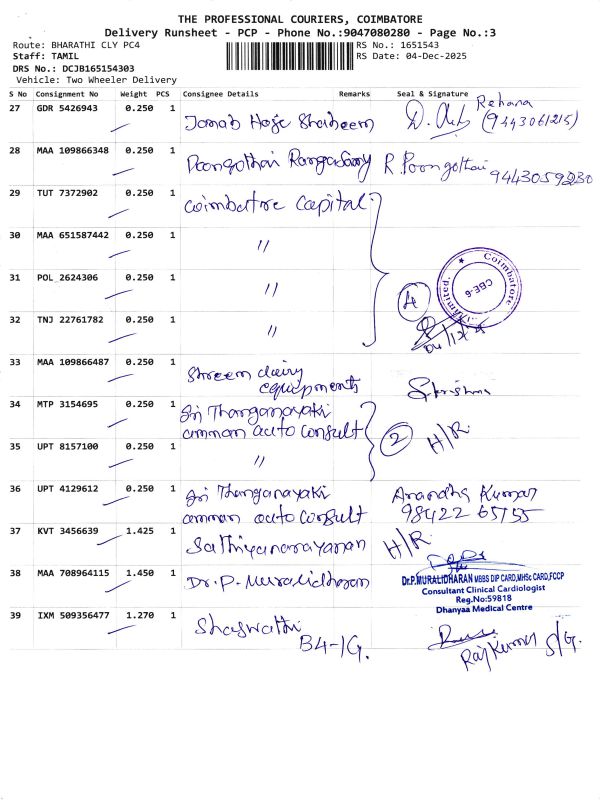 THE PROFESSIONAL COURIERS, COIMBATORE
Delivery Runsheet - PCP - Phone No.:9047080280 - Page No.:3
Route: BHARATHI CLY PC4 RS No.: 1651543
Staff: TAMIL RS Date: 04-Dec-2025
DRS No.: DCJB165154303
Vehicle: Two Wheeler Delivery
S No Consignment No Weight PCS Consignee Details Remarks Seal & Signature
27 GDR 5426943 0.250 1 Rehana
Janab Haje Shaheem (9443061215)
28 MAA 109866348 0.250 1 Poongothai Rangasamy R. Poongothai
9443059230
29 TUT 7372902 0.250 1 Coimbatore Capital
30 MAA 651587442 0.250 1 "
31 POL 2624306 0.250 1 " 4 Coimbatore CBE-6 Limited
32 TNJ 22761782 0.250 1 "
04/12/25
33 MAA 109866487 0.250 1 Shreem dairy
equipments
34 MTP 3154695 0.250 1 Sri Thanganayaki
amman auto consult 2 H/R
35 UPT 8157100 0.250 1 "
36 UPT 4129612 0.250 1 Sri Thanganayaki Anandha Kumar
amman auto consult 98422 65755
37 KVT 3456639 1.425 1 Sathiyanarayanan H/R
38 MAA 708964115 1.450 1 Dr. P. Muralidharan
Dr.P.MURALIDHARAN MBBS DIP CARD,MHSc CARD,FCCP
Consultant Clinical Cardiologist
Reg.No:59818
Dhanyaa Medical Centre
39 IXM 509356477 1.270 1 Shaswathi
B4-1G. Raj Kumar S/G.